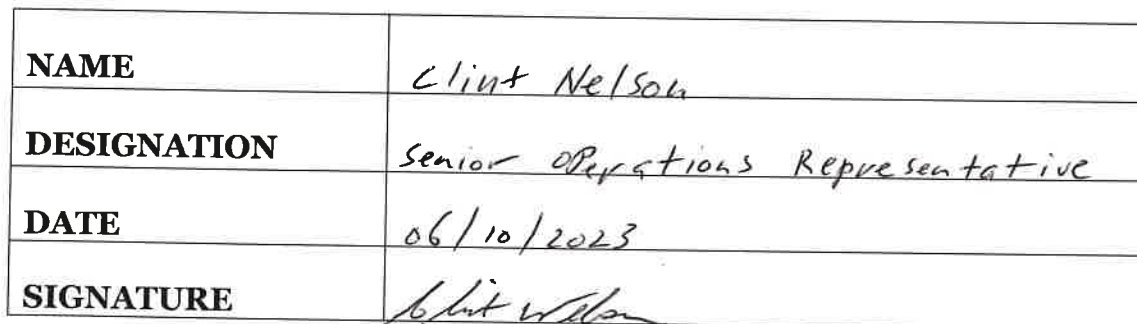 NAME Clint Nelson
DESIGNATION Senior Operations Representative
DATE 06/10/2023
SIGNATURE Clint Nelson